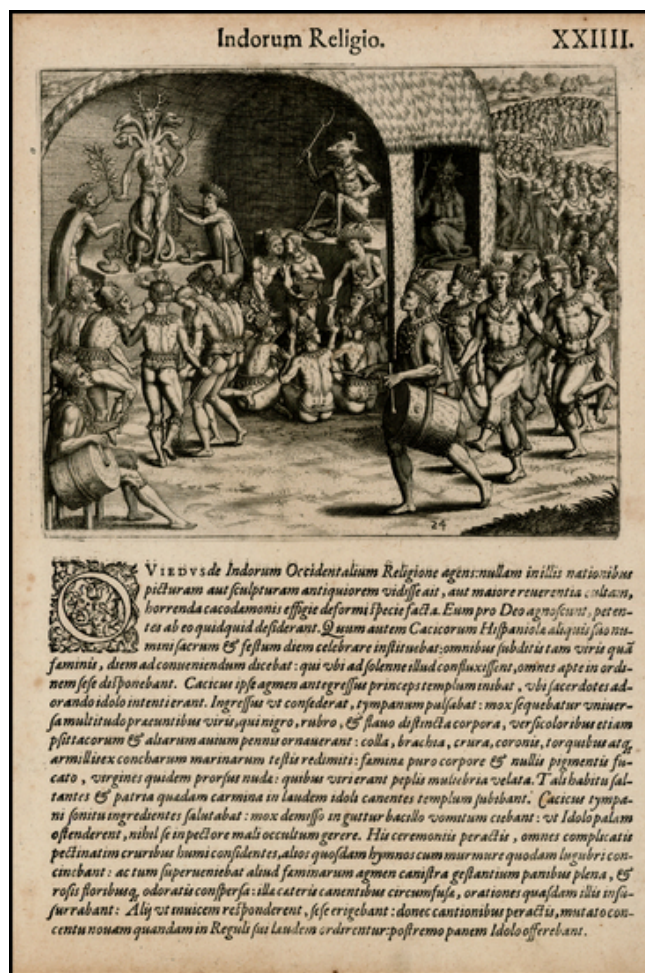 Indorum Religio.
XXIIII.
24
OVIEDVS de Indorum Occidentalium Religione agens: nullam in illis nationibus
picturam aut sculpturam antiquiorem vidisse ait, aut maiore reuerentia cultam,
horrenda cacodæmonis effigie deformi specie facta. Eum pro Deo agnoscunt, peten-
tes ab eo quidquid desiderant. Quum autem Cacicorum Hispaniolæ aliquis suo nu-
mini sacrum & festum diem celebrare instituebat: omnibus subditis tam viris quã
fœminis, diem ad conueniendum dicebat: qui vbi ad solenne illud confluxissent, omnes apte in ordi-
nem sese disponebant. Cacicus ipse agmen antegressus princeps templum inibat, vbi sacerdotes ad-
orando idolo intenti erant. Ingressus vt consederat, tympanum pulsabat: mox sequebatur vniuer-
sa multitudo præeuntibus viris, qui nigro, rubro, & flauo distincta corpora, versicoloribus etiam
psittacorum & aliarum auium pennis ornauerant: colla, brachia, crura, coronis, torquibus atq;
armillis ex concharum marinarum testis redimiti: fœminæ puro corpore & nullis pigmentis fu-
cato, virgines quidem prorsus nudæ: quibus viri erant peplis muliebria velatæ. Tali habitu sal-
tantes & patria quædam carmina in laudem idoli canentes templum subibant. Cacicus tympa-
ni sonitu ingredientes salutabat: mox demisso in guttur bacillo vomitum ciebant: vt Idolo palam
ostenderent, nihil se in pectore mali occultum gerere. His ceremoniis peractis, omnes complicatis
pectinatim cruribus humi considentes, alios quosdam hymnos cum murmure quodam lugubri con-
cinebant: ac tum superueniebat aliud fœminarum agmen canistra gestantium panibus plena, &
rosis floribusq; odoratis conspersa: illæ cæteris canentibus circumfusæ, orationes quasdam illis insu-
surrabant: Alij vt inuicem responderent, sese erigebant: donec cantionibus peractis, mutato con-
centu nouam quandam in Reguli sui laudem ordirentur: postremo panem Idolo offerebant.